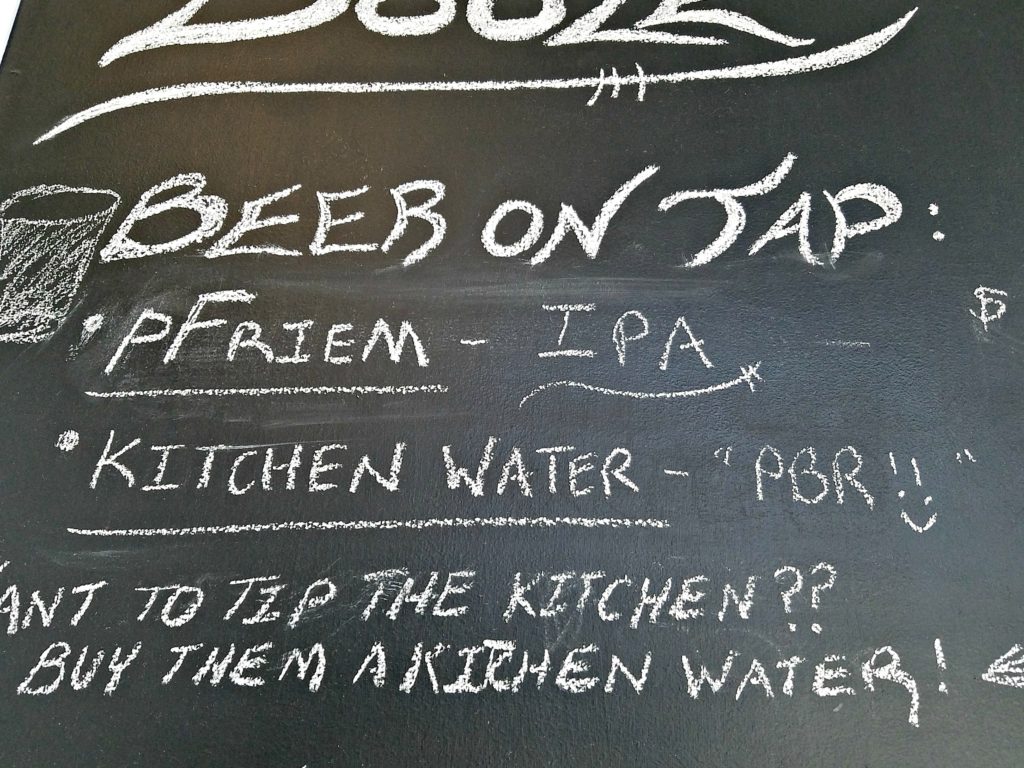 BOOZE
BEER ON TAP:
• PFRIEM - IPA - $
• KITCHEN WATER - "PBR!! "
ANT TO TIP THE KITCHEN??
BUY THEM A KITCHEN WATER!